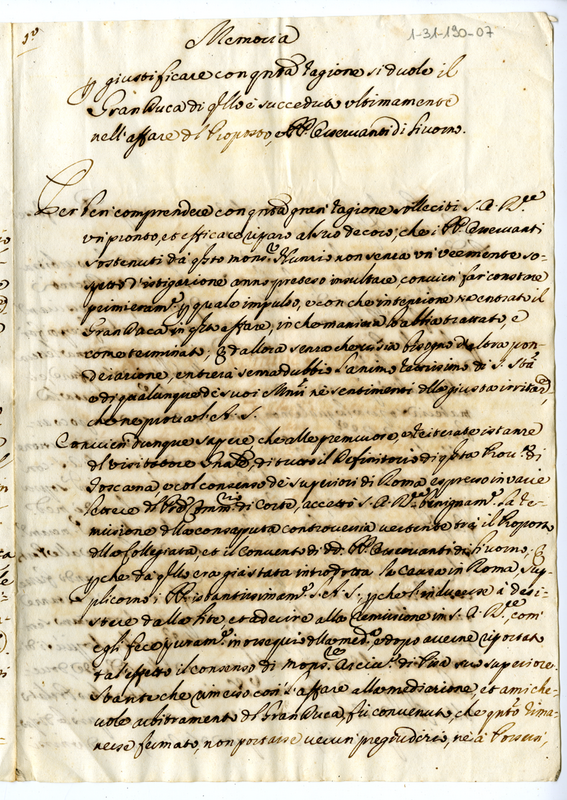 3º
1-31-190-07
Memoria
p giustificare con qnta ragione si duole il
Gran Duca di qllo è succeduto ultimamente
nell'affare dl Proposto, e PP. Osservanti di Livorno.
Per ben comprendere con qnta gran ragione solleciti S. A. R.le
un pronto, et efficace riparo al suo decoro, che i PP. Osservanti
sostenuti da qsto monsr. Nunzio non senza un veemente so-
spetto d'istigazione anno preteso insultare, convien far constare
primieramte. p quale impulso, e con che intenzione sia entrato il
Gran Duca in qsto affare; in che maniera lo abbia trattato, e
come terminato; E d allora senza che vi sia bisogno d altra pon-
derazione, entrerà senza dubbio l'animo
o di qualunque de suoi Mnri nè sentimenti dlla giusta
che ne prova S. A. S.
Convien dunque sapere che alle premurose, e reiterate istanze
dl Visitatore Gnale, di tutto il Definitorio di qsta Prova. di
Toscana e col consenso de Superiori di Roma espresso in varie
lettere dl Pre Commrio di Corte, accettò S. A. Rle benignamte. la re-
missione dlla consaputa controversia vertente trà il Proposto
dlla Collegiata, et il Convento di dd. PP. Osservanti di Livorno; E
pche da qllo era già stata introdotta la causa in Roma sup-
plicorno i PP. istantissimamte. S. A. S., pche l'inducesse à desi-
stere dalla lite, et aderire alla remissione in S. A. Rle, com'
egli fece puramte. in ossequio dlla medma, e dopo averne riportato
tal effetto il consenso di monsr. Arcivo. di Pisa suo superiore.
Stante che rimesso così l'affare alla mediazione, et amiche-
vole arbitramento dl Gran Duca, fù convenuto, che qnto rima-
nesse fermato, non portasse verun pregiudizio, nè à Possessi,